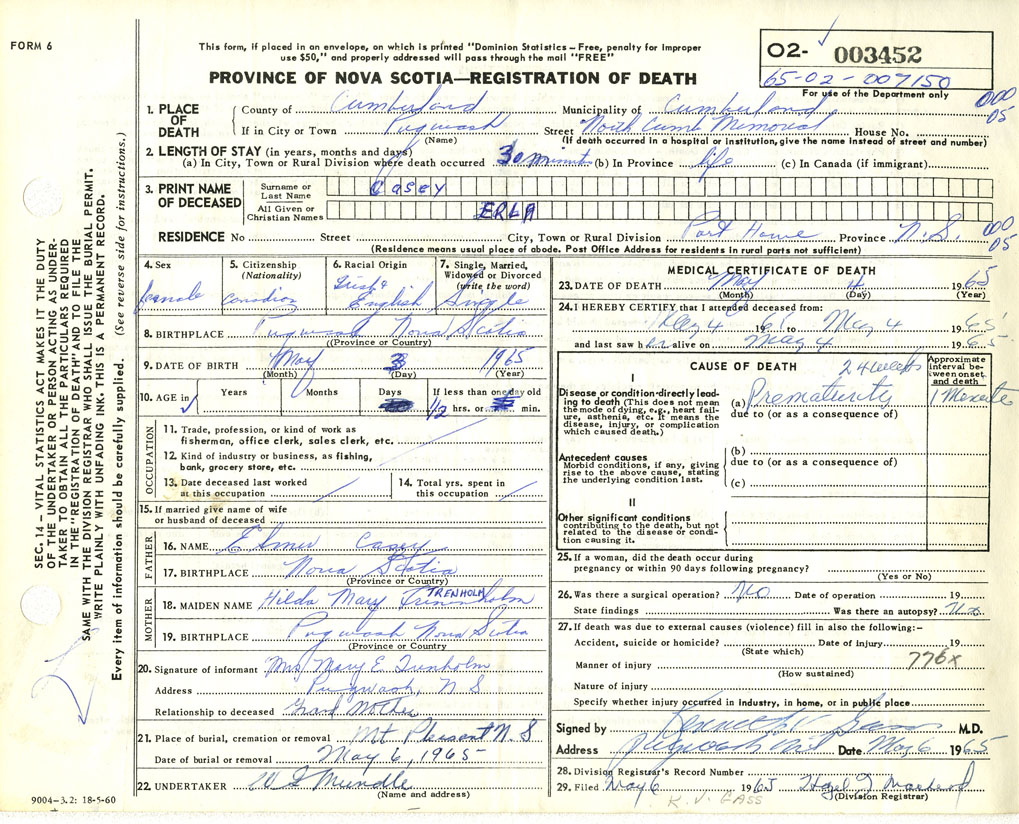 FORM 6
This form, if placed in an envelope, on which is printed "Dominion Statistics – Free, penalty for improper
use $50," and properly addressed will pass through the mail "FREE"
PROVINCE OF NOVA SCOTIA—REGISTRATION OF DEATH
O2- 003452
65-02-007150
For use of the Department only
1. PLACE OF DEATH
County of Cumberland Municipality of Cumberland 000
If in City or Town Pugwash Street North Cumb Memorial House No. 05
(Name) (If death occurred in a hospital or institution, give the name instead of street and number)
2. LENGTH OF STAY (in years, months and days)
(a) In City, Town or Rural Division where death occurred 30 (b) In Province life (c) In Canada (if immigrant)
3. PRINT NAME OF DECEASED
Surname or Last Name Casey
All Given or Christian Names ERLA
RESIDENCE No Street City, Town or Rural Division Port Howe Province N.S. 000
05
(Residence means usual place of abode. Post Office Address for residents in rural parts not sufficient)
4. Sex female
5. Citizenship (Nationality) Canadian
6. Racial Origin Irish & English
7. Single, Married, Widowed or Divorced (write the word) Single
8. BIRTHPLACE Pugwash Nova Scotia
(Province or Country)
9. DATE OF BIRTH May 3 1965
(Month) (Day) (Year)
10. AGE in Years Months Days If less than one day old
1/2 hrs. or min.
OCCUPATION
11. Trade, profession, or kind of work as
fisherman, office clerk, sales clerk, etc.
12. Kind of industry or business, as fishing,
bank, grocery store, etc.
13. Date deceased last worked at this occupation
14. Total yrs. spent in this occupation
15. If married give name of wife
or husband of deceased
FATHER
16. NAME Elmer Casey
17. BIRTHPLACE Nova Scotia
(Province or Country)
MOTHER
TRENHOLM
18. MAIDEN NAME Hilda Mary
19. BIRTHPLACE Pugwash Nova Scotia
(Province or Country)
20. Signature of informant Mrs Mary E Trenholm
Address Pugwash, N S
Relationship to deceased Grand Mother
21. Place of burial, cremation or removal Mt Pleasant N S
Date of burial or removal May 6, 1965
22. UNDERTAKER Mundle
(Name and address)
9004–3.2: 18-5-60
MEDICAL CERTIFICATE OF DEATH
23. DATE OF DEATH May 4 1965
(Month) (Day) (Year)
24. I HEREBY CERTIFY that I attended deceased from:
May 4 to May 4 1965
and last saw her alive on May 4 1965
CAUSE OF DEATH 24 weeks
Approximate interval between onset and death
I
Disease or condition directly leading to death (This does not mean the mode of dying, e.g., heart failure, asthenia, etc. It means the disease, injury, or complication which caused death.)
(a) Prematurity
due to (or as a consequence of)
Antecedent causes
Morbid conditions, if any, giving rise to the above cause, stating the underlying condition last.
(b)
due to (or as a consequence of)
(c)
II
Other significant conditions
contributing to the death, but not related to the disease or condition causing it.
25. If a woman, did the death occur during
pregnancy or within 90 days following pregnancy?
(Yes or No)
26. Was there a surgical operation? No Date of operation 19
State findings Was there an autopsy? No
27. If death was due to external causes (violence) fill in also the following:–
Accident, suicide or homicide? Date of injury 19
(State which) 776x
Manner of injury
(How sustained)
Nature of injury
Specify whether injury occurred in industry, in home, or in public place
Signed by Kenneth V Gass M.D.
Address Pugwash Date May 6 1965
28. Division Registrar's Record Number
29. Filed May 6 1965 Hazel J Macleod
(Division Registrar)
K. V. GASS
SEC. 14 – VITAL STATISTICS ACT MAKES IT THE DUTY
OF THE UNDERTAKER OR PERSON ACTING AS UNDER-
TAKER TO OBTAIN ALL THE PARTICULARS REQUIRED
IN THE "REGISTRATION OF DEATH" AND TO FILE THE
SAME WITH THE DIVISION REGISTRAR WHO SHALL ISSUE THE BURIAL PERMIT.
WRITE PLAINLY WITH UNFADING INK. THIS IS A PERMANENT RECORD.
Every item of information should be carefully supplied. (See reverse side for instructions.)